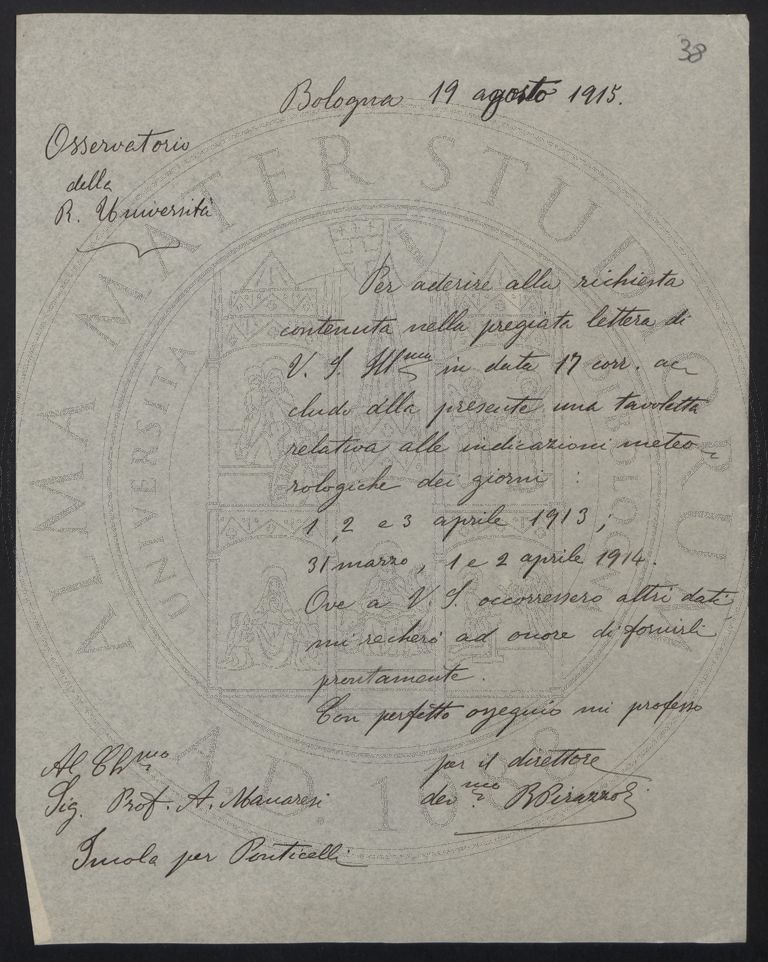 38
Bologna 19 agosto 1915.
Osservatorio
della
R. Università
Per aderire alla richiesta
contenuta nella pregiata lettera di
V. S. Ill^ma in data 17 corr. ac-
cludo alla presente una tavoletta
relativa alle indicazioni meteo-
rologiche dei giorni :
1, 2 e 3 aprile 1913 ;
31 marzo, 1 e 2 aprile 1914.
Ove a V. S. occorressero altri dati
mi recherò ad onore di fornirli
prontamente.
Con perfetto ossequio mi professo
per il direttore
dev^mo R Pirazzoli
Al Ch^mo
Sig. Prof. A. Manaresi
Imola per Ponticelli
ALMA MATER STUDIORUM
UNIVERSITA
A.D. 1088